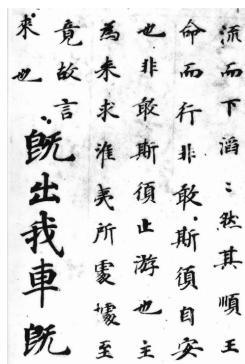 流而下滔〻然其順王
命而行非敢斯須自安
也非敢斯須止游也主
為来求淮夷所處據至
竟故言
来也
既出我車既